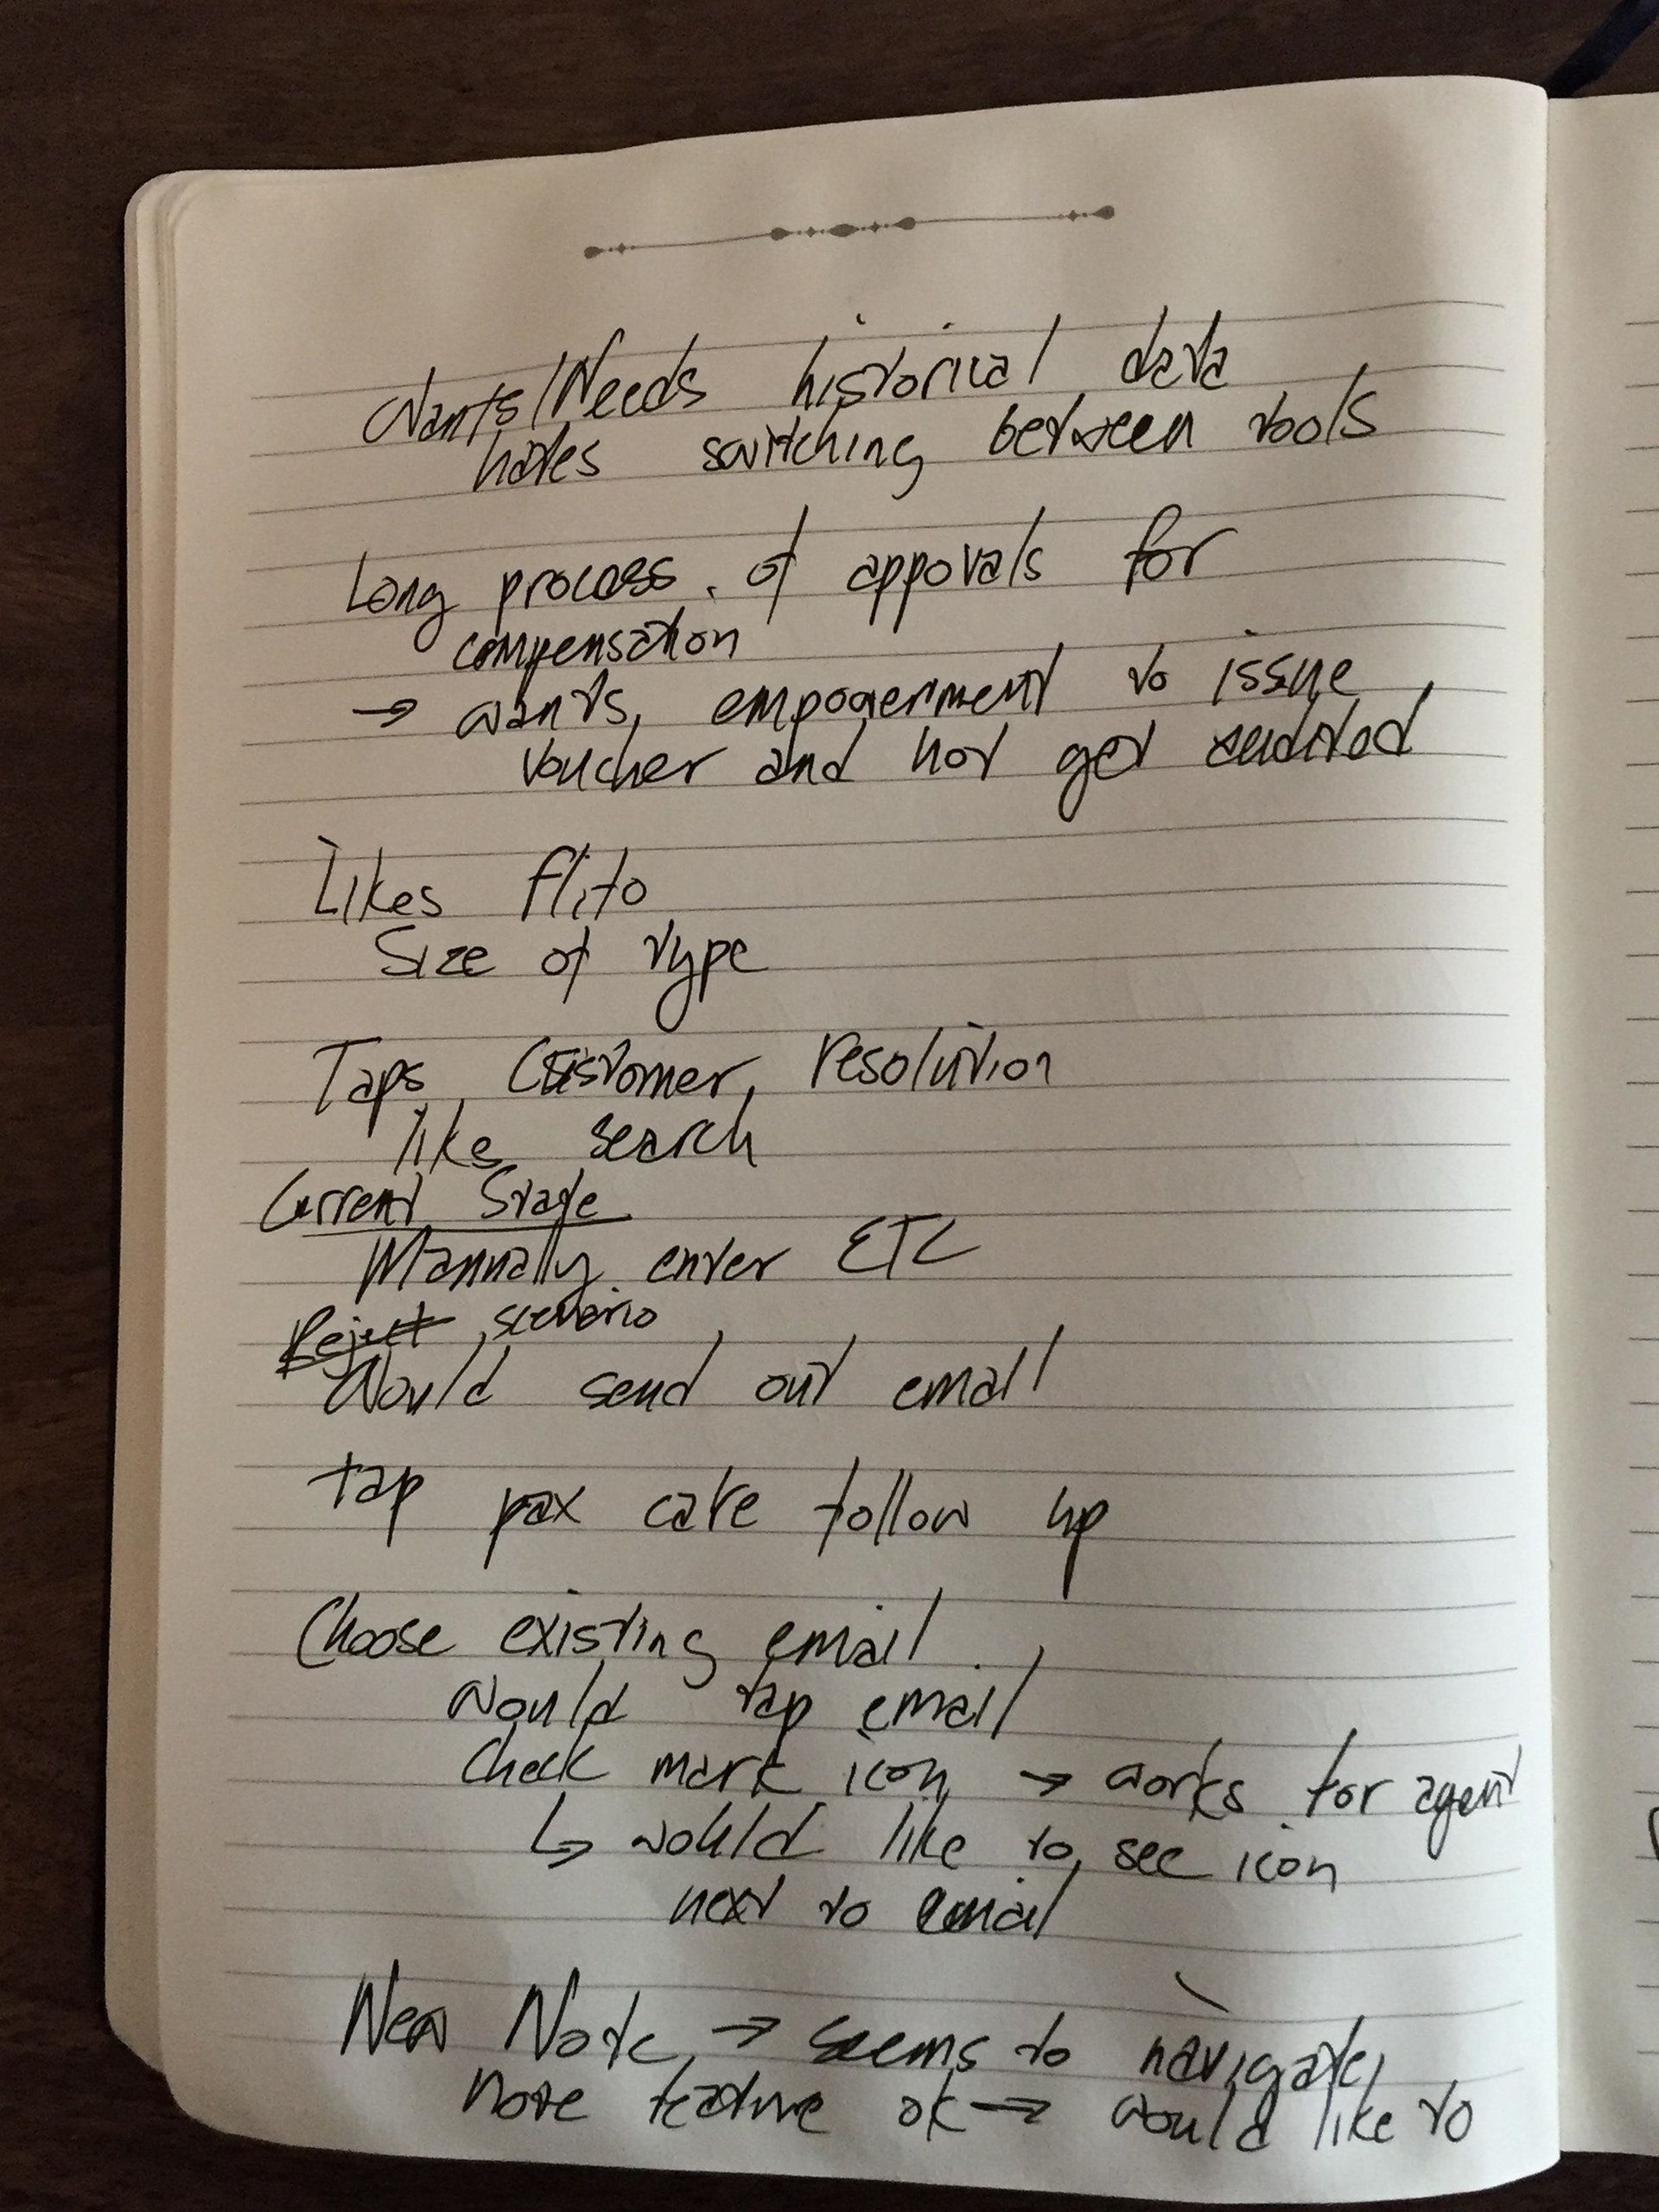 Wants/Needs historical data
hates switching between tools
Long process of appovals for
compensation
→ wants empowerment to issue
voucher and not get audited
Likes flifo
Size of type
Taps Customer resolution
like search
Current State
Mannally enter ETC
Reject scenario
Would send out email
tap pax care follow up
Choose existing email
would tap email
check mark icon → works for agent
↳ would like to see icon
next to email
New Note → seems to navigate
note feature ok → would like to